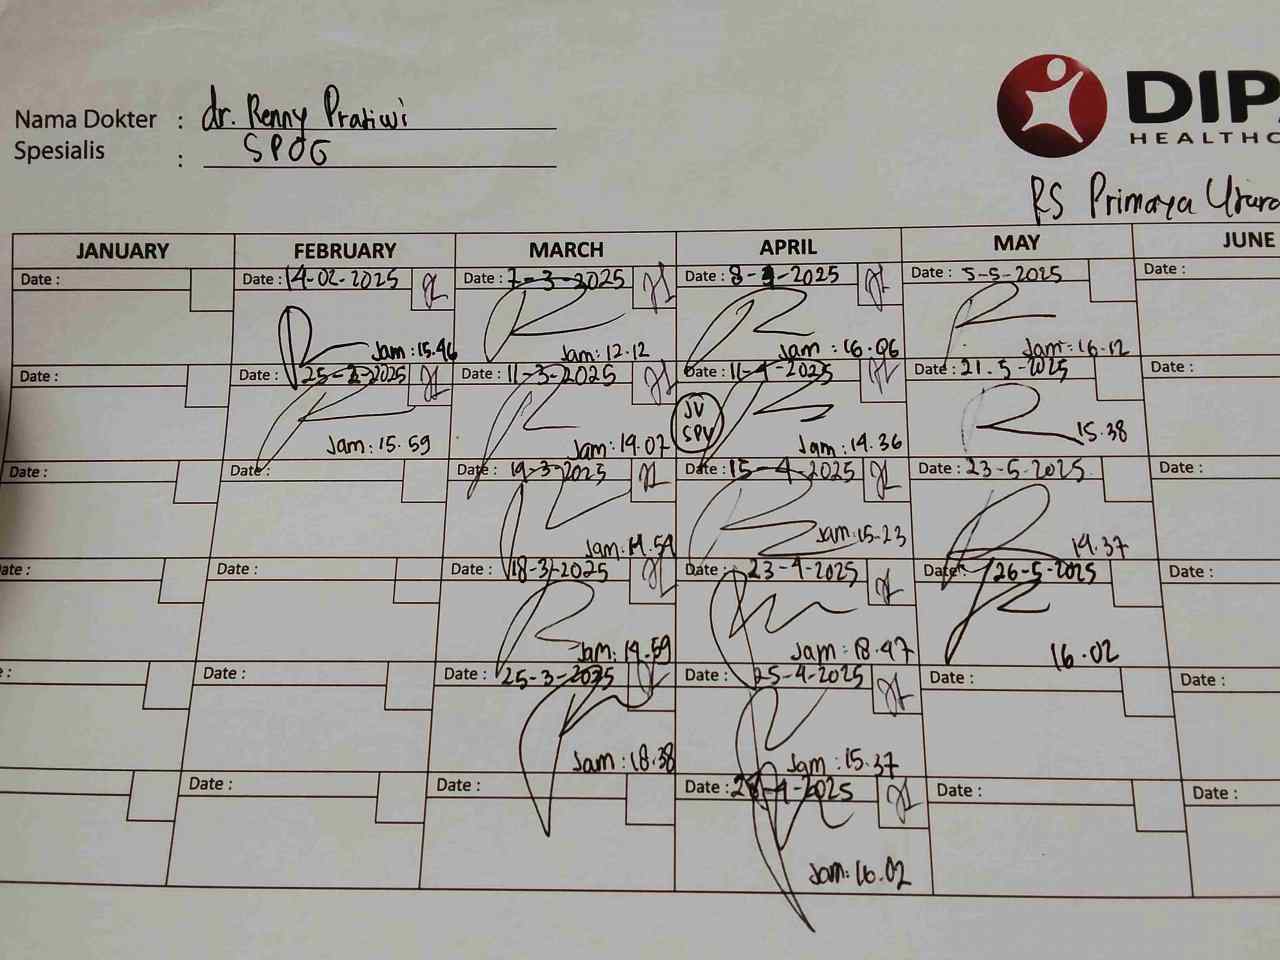 Nama Dokter : dr. Renny Pratiwi
Spesialis : SPOG
DIPA
HEALTHC
RS Primaya Utara
JANUARY FEBRUARY MARCH APRIL MAY JUNE
Date : Date : 14-02-2025 Date : 7-3-2025 Date : 8-4-2025 Date : 5-5-2025 Date :
Jam : 15.46 Jam : 12.12 Jam : 16.06 Jam : 16.12
Date : Date : 25-2-2025 Date : 11-3-2025 Date : 11-4-2025 Date : 21.5-2025 Date :
JV
SPV
Jam : 15.59 Jam : 14.07 Jam : 14.36 15.38
Date : Date : Date : 14-3-2025 Date : 15-4-2025 Date : 23-5-2025 Date :
Jam : 14.54 Jam : 15.23 14.37
Date : Date : Date : 18-3-2025 Date : 23-4-2025 Date : 26-5-2025 Date :
Jam : 14.59 Jam : 18.47 16.02
: Date : Date : 25-3-2025 Date : 25-4-2025 Date : Date :
Jam : 18.38 Jam : 15.37
Date : Date : Date : Date : Date :
Jam : 16.02